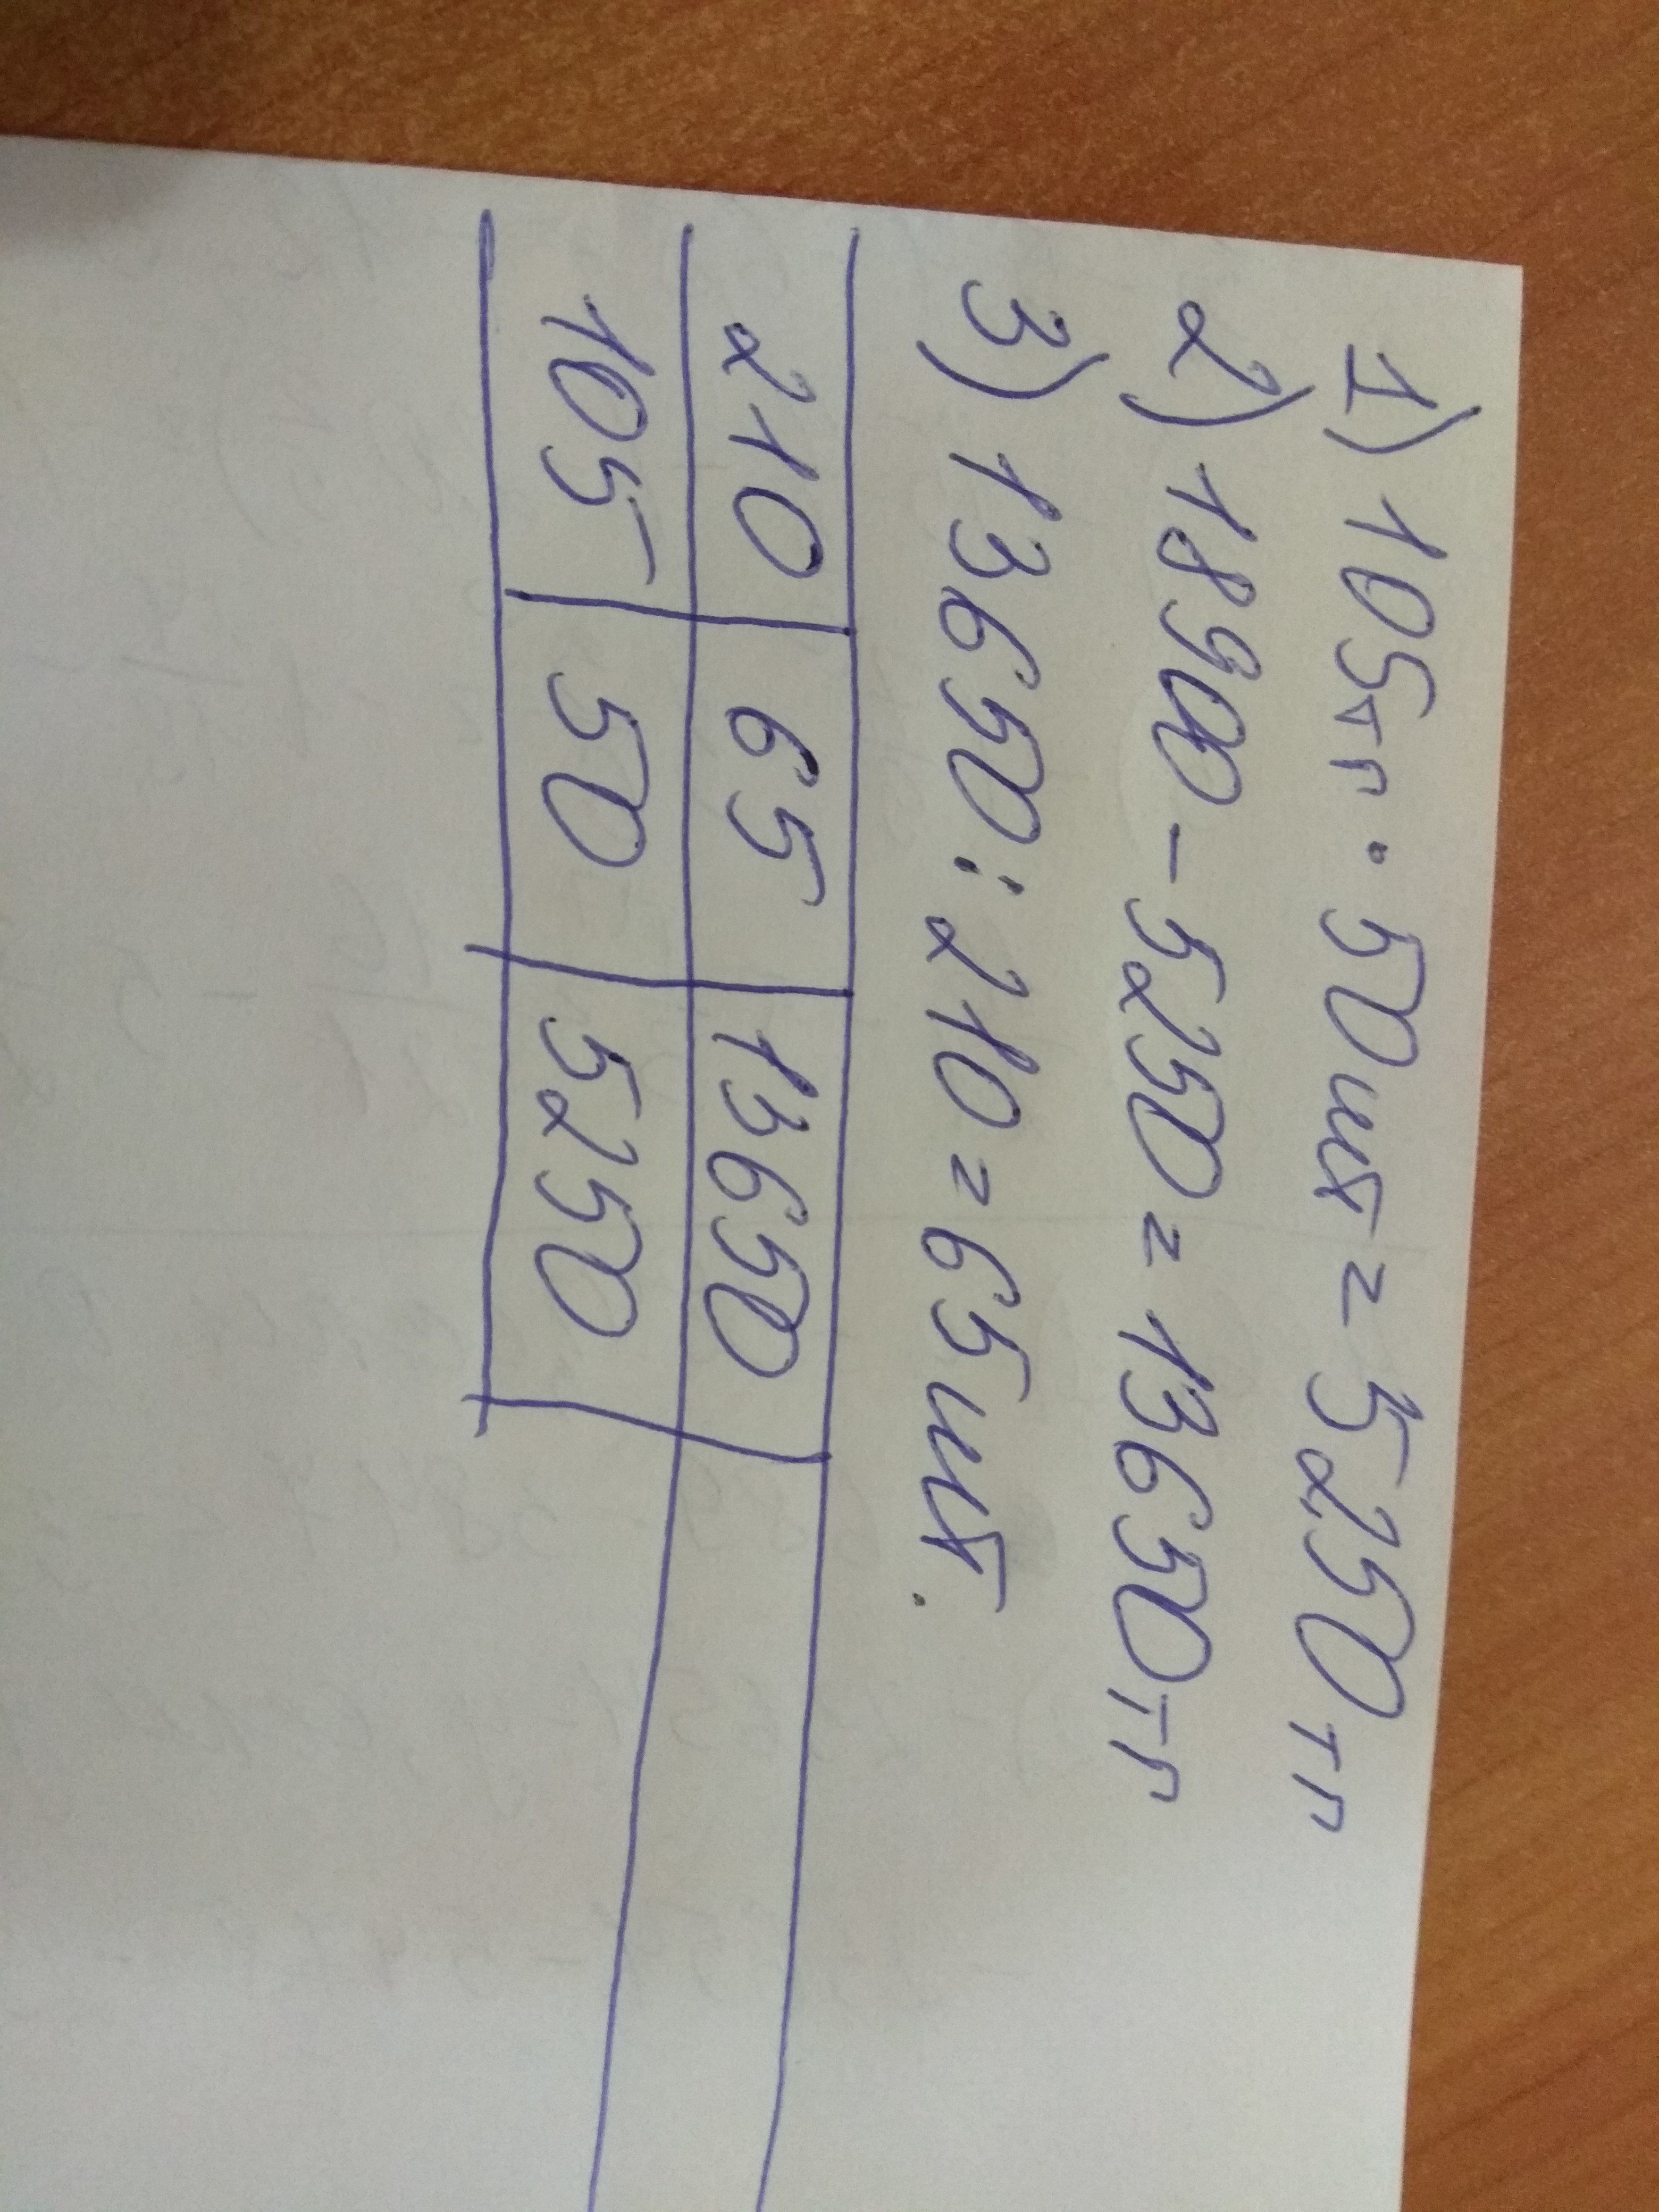 1) 105тг · 50шт = 5250тг
2) 18900 - 5250 = 13650тг
3) 13650 : 210 = 65шт.
210 65 13650
105 50 5250